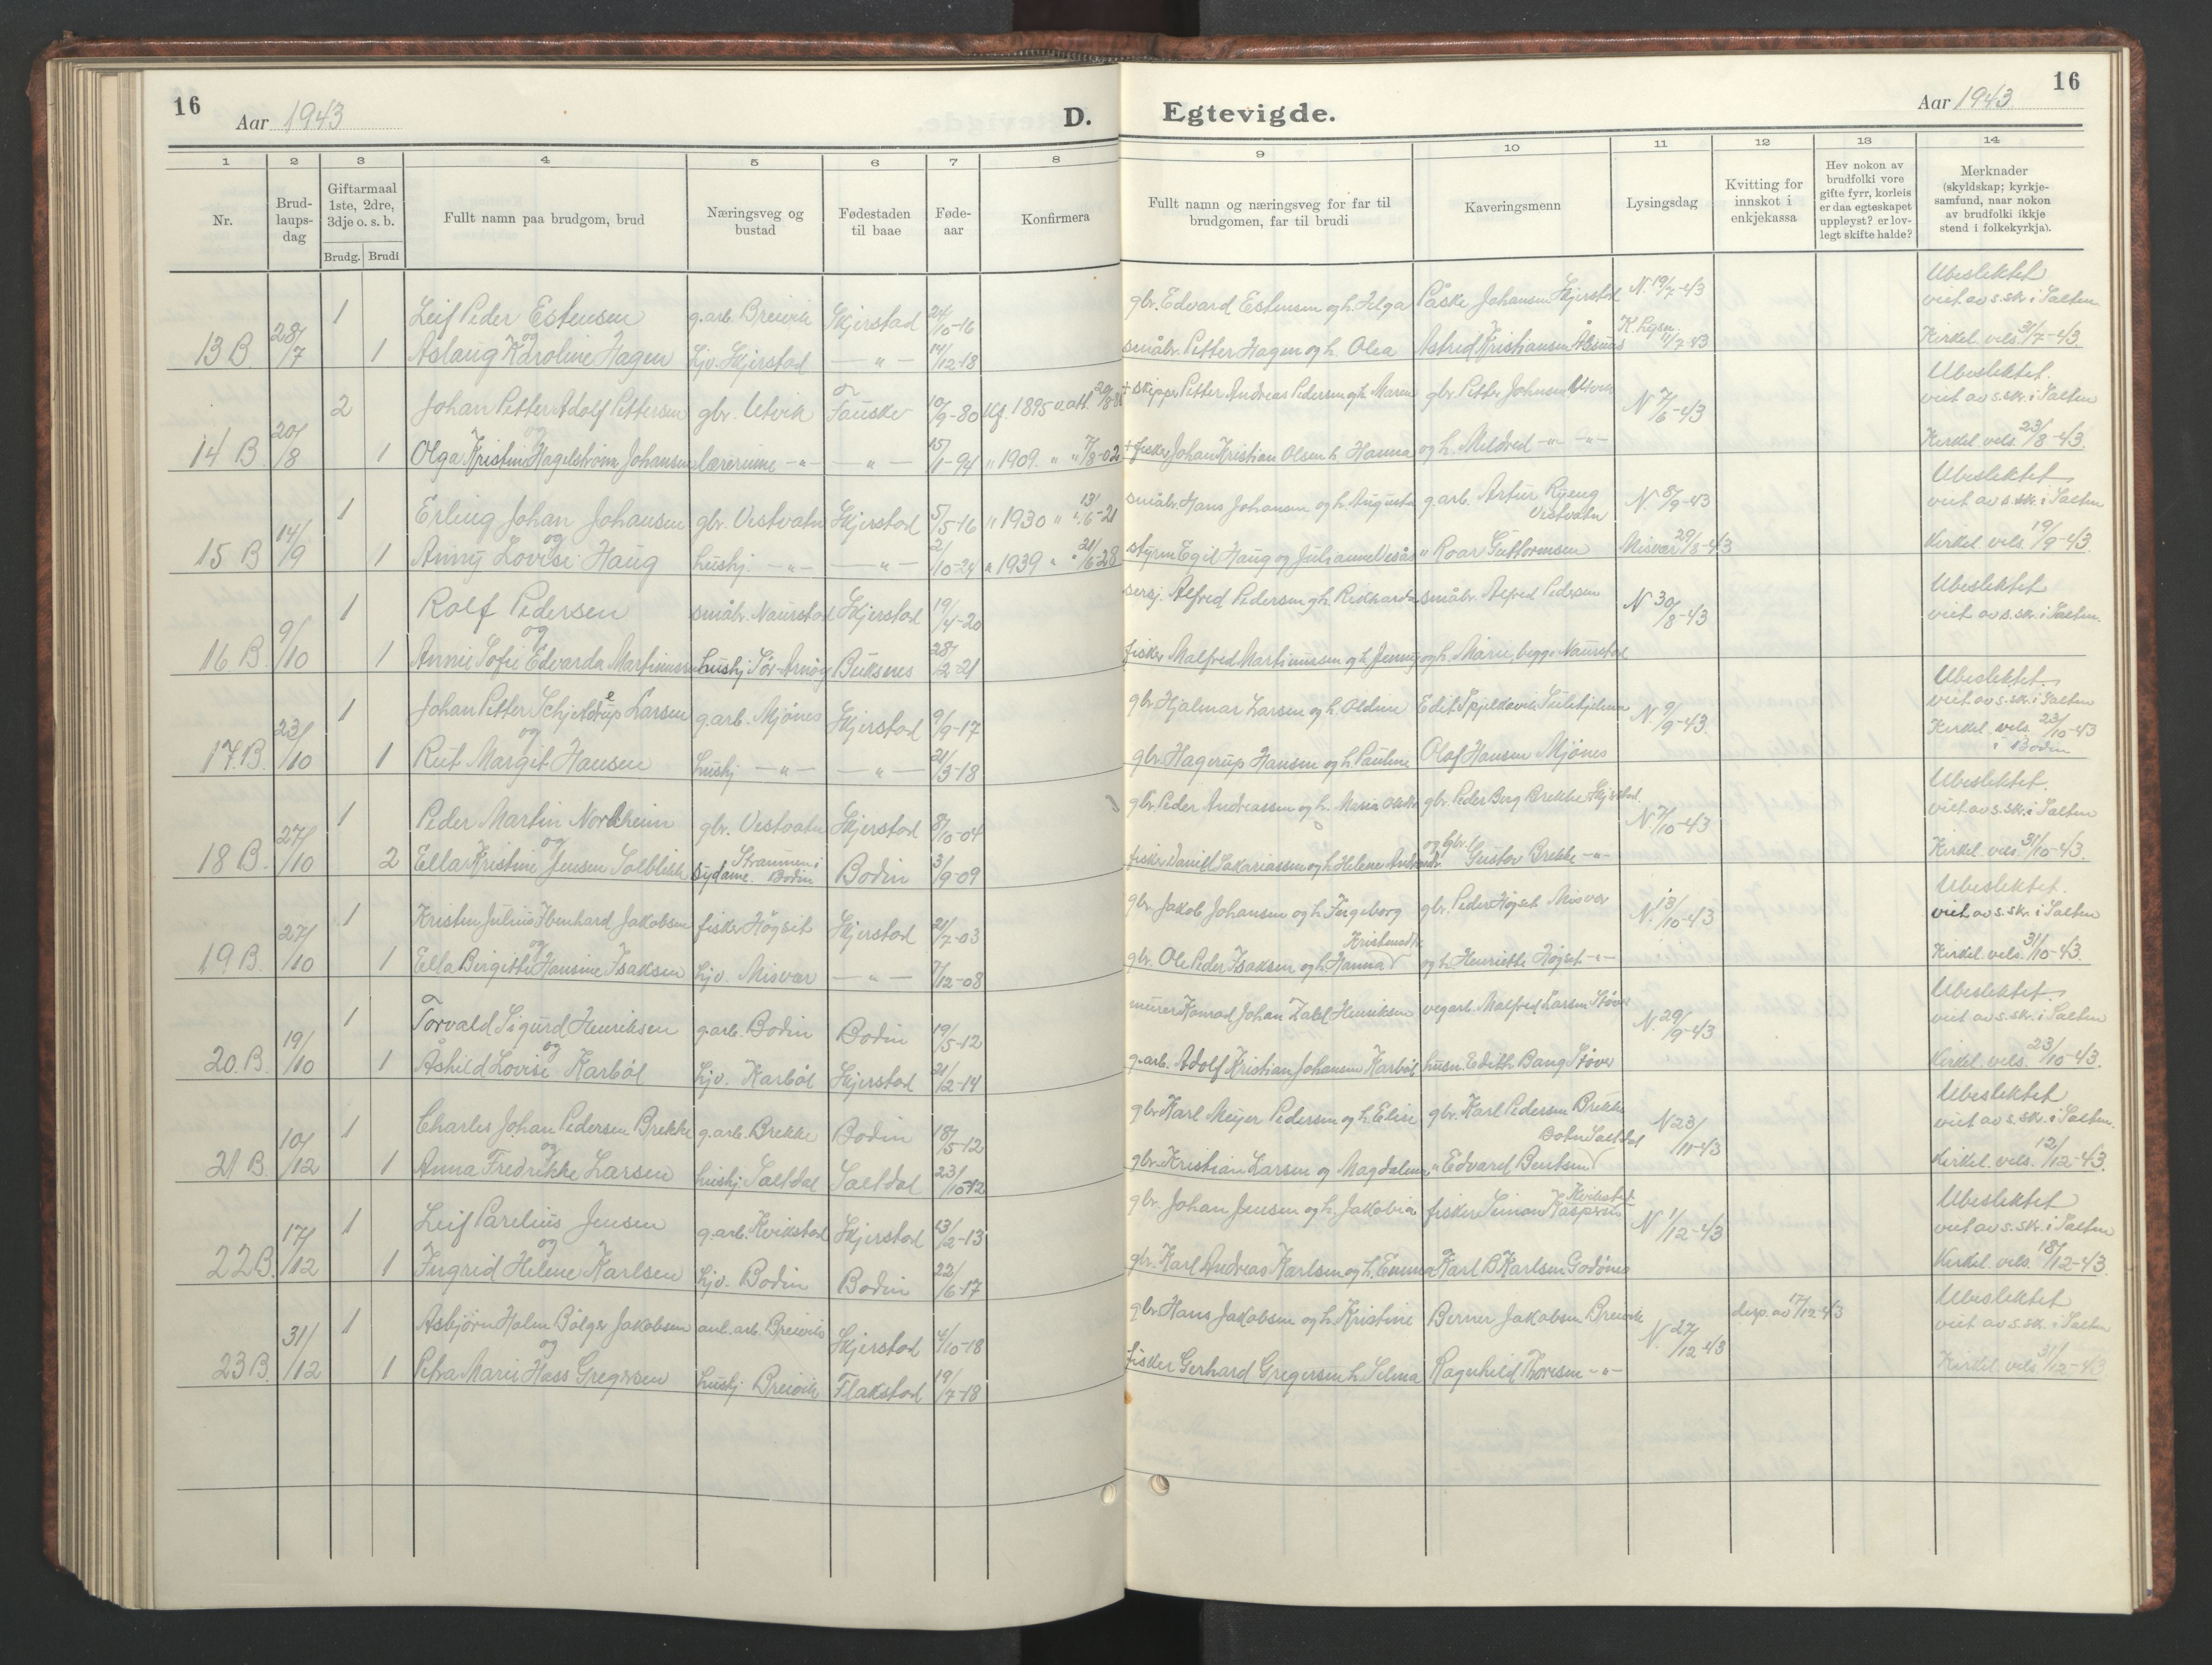 16
Aar 1943
D.
Egtevigde.
Aar 1943
16
1 2 3 4 5 6 7 8 9 10 11 12 13 14
Nr.
Brud-
laups-
dag
Giftarmaal
1ste, 2dre,
3dje o. s. b.
Brudg. Brudi
Fullt namn paa brudgom, brud
Næringsveg og
bustad
Fødestaden
til baae
Føde-
aar
Konfirmera
Fullt namn og næringsveg for far til
brudgomen, far til brudi
Kaveringsmenn
Lysingsdag
Kvitting for
innskot i
enkjekassa
Hev nokon av
brudfolki vore
gifte fyrr, korleis
er daa egteskapet
uppløyst? er lov-
legt skifte halde?
Merknader
(skyldskap; kyrkje-
samfund, naar nokon
av brudfolki ikkje
stend i folkekyrkja).
1 Leif Peder Estensen g.arb. Breivik Skjerstad 24/10-16 gbr. Edvard Estensen og h. Helga Påske Johansen Skjerstad N. 19/7-43 Ubeslektet
viet av s.skr. i Salten
og
13 B. 28/7 1 Aslaug Karoline Hagen hjv. Skjerstad — " — 14/12-18 småbr. Petter Hagen og h. Olea Astrid Kristiansen Ålesnes K. Lysn. 11/7-43 Kirkel. vels. 31/7-43.
2 Johan Petter Adolf Pettersen gbr. Utvik Fauske 10/9-80 Kf. 1895 v.att. 20/8-81 + skipper Petter Andreas Pedersen og h. Maren gbr. Petter Johnsen Utvik N 7/6-43 Ubeslektet.
viet av s.skr. i Salten
og
14 B. 20/8 1 Olga Kristine Hagelstrøm Johansen lærerinne — " — — " — 15/1-94 " 1909. " " 7/8-02 + fisker Johan Kristian Olsen h. Hanna og h. Mildred — " — " — Kirkel. vels. 23/8-43.
1 Erling Johan Johansen gbr. Vestvatn Skjerstad 5/5-16 " 1930 " " 13/6-21 småbr. Hans Johansen og h. Augusta g.arb. Artur Ryeng
Vestvatn N. 8/9-43 Ubeslektet
viet av s.skr. i Salten
og
15 B 14/9 1 Anny Lovise Haug hushj. — " — — " — 2/10-24 " 1939 " " 21/6-28 styrm Egil Haug og Julianne Vesås " Roar Guttormsen Misvær 29/8-43 Kirkel. vels. 19/9-43.
1 Rolf Pedersen småbr. Naurstad Skjerstad 19/4-20 sersj. Alfred Pedersen og h. Rikharda småbr. Alfred Pedersen N 30/8-43 Ubeslektet
viet av s.skr. i Salten.
og
16 B. 9/10 1 Annie Sofie Edvarda Martinussen hushj Sør-Arnøy Buksnes 28/2-21 fisker Malfred Martinussen og h. Jenny og h. Marie, begge Naurstad
1 Johan Petter Schjelderup Larsen g.arb. Mjønes Skjerstad 9/9-17 gbr. Hjalmar Larsen og h. Oldine Edit Spjelkavik Sulitjelma N. 9/9-43. Ubeslektet.
viet av s.skr. i Salten
og
17. B. 23/10 1 Rut Margit Hansen hushj — " — — " — 21/3-18 gbr. Hagerup Hansen og h. Pauline Olaf Hansen Mjönes Kirkel. vels. 23/10-43
i Bodin
1 Peder Martin Nordheim gbr. Vestvatn Skjerstad 8/10-04 gbr. Peder Andreassen og h. Maria gbr. Peder Berg Brekke Skjerstad. N. 7/10-43 Ubeslektet.
viet av s.skr. i Salten
og
18 B. 27/10 2 Ella Kristine Jensen Solblikk sydame. Straumen i
Bodin Bodin 3/9-09 fisker Daniel Sakariassen og h. Helene og gbr. Gustav Brekke — " — Kirkel. vels 31/10-43.
1 Kristen Julius Ibenhard Jakobsen fisker Høgset Skjerstad 21/7-03 gbr. Jakob Johansen og h. Ingeborg gbr. Peder Høgset Misvær N. 13/10-43 Ubeslektet.
viet av s.skr. i Salten
og
19 B. 27/10 1 Ella Birgitte Hansine Isaksen hjv. Misvær — " — 7/12-08 gbr. Ole Peder Isaksen og h. Hanna og h. Henriette Høgset — " — Kirkel. vels. 31/10-43.
1 Torvald Sigurd Henriksen g.arb. Bodin Bodin 19/5-12 murer Konrad Johan Zahl Henriksen vegarb. Malfred Larsen Støver N. 29/9-43 Ubeslektet.
viet av s.skr. i Salten
og
20. B. 19/10 1 Åshild Lovise Karbøl hjv. Karbøl Skjerstad 21/2-14 g.arb. Adolf Kristian Johansen Karbøl husn. Edith Bang Støver Kirkel. vels. 23/10-43.
1 Charles Johan Pedersen Brekke g.arb. Brekke Bodin 18/5-12 gbr. Karl Meyer Pedersen og h. Elise gbr. Karl Pedersen Brekke N 23/11-43 Ubeslektet
viet av s.skr. i Salten.
og
21 B. 10/12 1 Anna Fredrikke Larsen hushj. Saltdal Saltdal 23/10-12 gbr. Kristian Larsen og Magdalena " Edvard Bentsen Botn Saltdal Kirkel. vels. 12/12-43.
1 Leif Parelius Jensen g.arb. Kvikstad Skjerstad 13/2-13 gbr. Johan Jensen og h. Jakobia fisker Simon Kaspersen Kvikstad N 1/12-43 Ubeslektet
viet av s.skr. i Salten
og
22 B. 17/12 1 Ingrid Helene Karlsen hjv. Bodin Bodin 22/6-17 gbr. Karl Andreas Karlsen og h. Emma Karl B Karlsen Godønes Kirkel. vels. 18/12-43.
1 Asbjørn Holm Bølger Jakobsen anl. arb. Breivik Skjerstad 4/10-18 gbr. Hans Jakobsen og h. Kristine Berner Jakobsen Breivik N. 27/12-43 disp. av 17/12-43 Ubeslektet
viet av s.skr. i Salten
og
23 B. 31/12 1 Petra Marie Hass Gregersen hushj Breivik Flakstad 19/7-18 fisker Gerhard Gregersen h. Selma Ragnhild Thoresen — " — Kirkel. vels 31/12-43